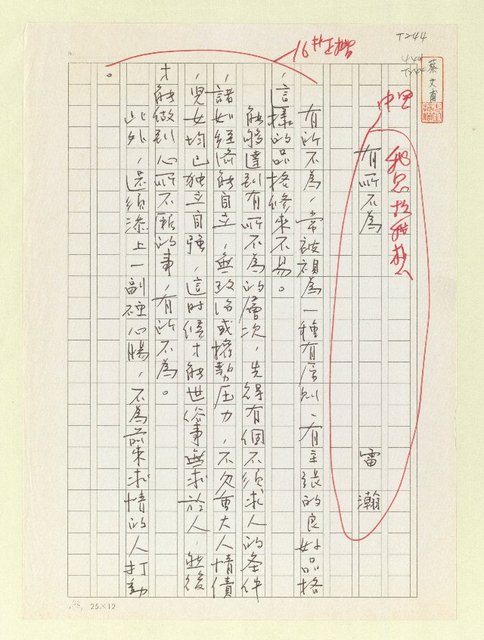 T244
蔡文甫
16
中
有所不為
雷瀚
有所不為，常被視為一種有原則、有主張的良好品格
，這樣的品格修來不易。
能夠達到有所不為的層次，先得有個不須求人的条件
，諸如經濟能自立，無政治或權勢压力，不欠重大人情債
，兒女均已独立自強，這时候才能世俗事無求於人，然後
才能做到心所不願的事，有所不為。
此外，還須添上一副硬心腸，不為前來求情的人打動
。
25×12